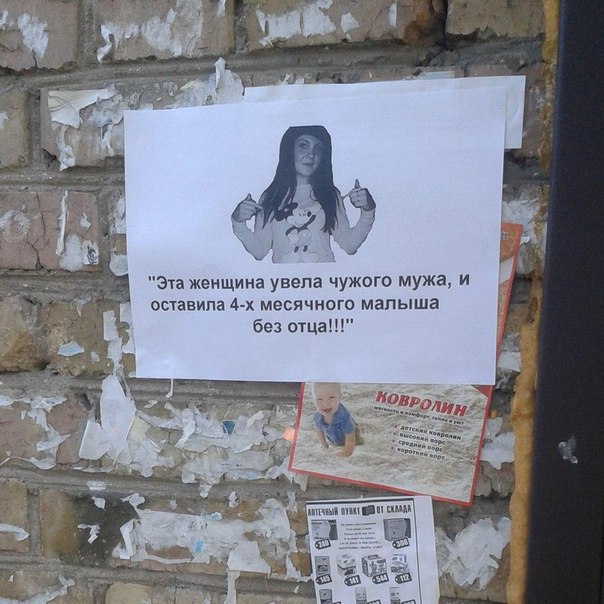 "Эта женщина увела чужого мужа, и
оставила 4-х месячного малыша
без отца!!!"
КОВРОЛИН
мягкость и комфорт, тепло и уют
детский ковролин
высокий ворс
средний ворс
короткий ворс
АПТЕЧНЫЙ ПУНКТ ОТ СКЛАДА